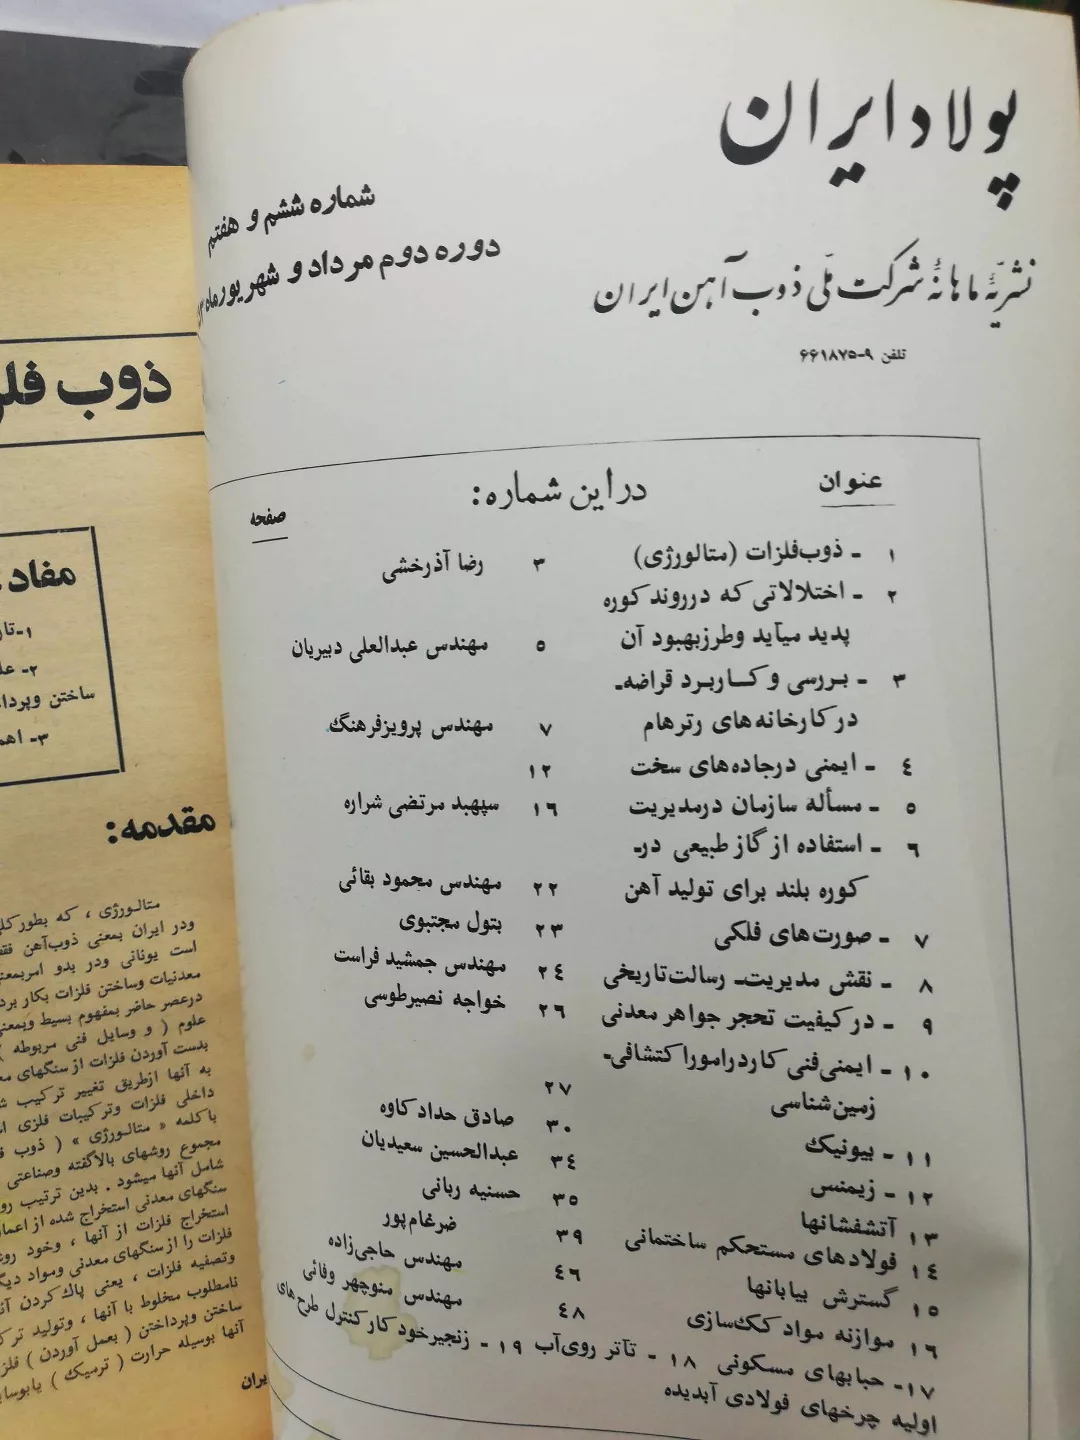 پولاد ایران
شماره ششم و هفتم
دوره دوم مرداد و شهریورماه
نشریهٔ ماهانهٔ شرکت ملی ذوب آهن ایران
تلفن ۹-۶۶۱۸۷۵
عنوان در این شماره: صفحه
۱ - ذوب‌فلزات (متالورژی) ۳ رضا آذرخشی
۲ - اختلالاتی که درروند کوره
پدید میآید وطرزبهبود آن ۵ مهندس عبدالعلی دبیریان
۳ - بررسی و کاربرد قراضه-
در کارخانه‌های رترهام ۷ مهندس پرویزفرهنگ
۴ - ایمنی درجاده‌های سخت ۱۲
۵ - مسأله سازمان درمدیریت ۱۶ سپهبد مرتضی شراره
۶ - استفاده از گاز طبیعی در-
کوره بلند برای تولید آهن ۲۲ مهندس محمود بقائی
۷ - صورت‌های فلکی ۲۳ بتول مجتبوی
۸ - نقش مدیریت- رسالت‌تاریخی ۲۴ مهندس جمشید فراست
۹ - در کیفیت تحجر جواهر معدنی ۲۶ خواجه نصیرطوسی
۱۰ - ایمنی‌فنی کاردرامور‌اکتشافی-
زمین‌شناسی ۲۷
۱۱ - بیونیک ۳۰ صادق حداد کاوه
۱۲ - زیمنس ۳۴ عبدالحسین سعیدیان
۱۳ آتشفشانها ۳۵ حسنیه ربانی
۱۴ فولادهای مستحکم ساختمانی ۳۹ ضرغام‌پور
۱۵ گسترش بیابانها ۴۶ مهندس حاجی‌زاده
۱۶ موازنه مواد کک‌سازی ۴۸ مهندس منوچهر وفائی
۱۷- حبابهای مسکونی ۱۸ - تآتر روی‌آب ۱۹ - زنجیرخود کار کنترل طرح‌های
اولیه چرخهای فولادی آبدیده
ذوب
مفاد
۲-
ساختن
۳-
مقدمه:
متالورژی ، که
ودر ایران بمعنی ذوب‌آهن
است یونانی ودر بدو
معدنیات وساختن فلزات بکار
درعصر حاضر بمفهوم بسیط
علوم ( و وسایل فنی مربوطه )
بدست آوردن فلزات از سنگهای
به آنها ازطریق تغییر ترکیب
داخلی فلزات وترکیبات فلزی
باکلمه « متالورژی » ( ذوب
مجموع روشهای بالاگفته وصناعتی
شامل آنها میشود . بدین ترتیب
سنگهای معدنی استخراج شده از
استخراج فلزات از آنها ، وخود
فلزات را از سنگهای معدنی ومواد
وتصفیه فلزات ، یعنی پاک کردن
نامطلوب مخلوط با آنها ، وتولید
ساختن وپرداختن ( بعمل آوردن )
آنها بوسیله حرارت ( ترمیک )